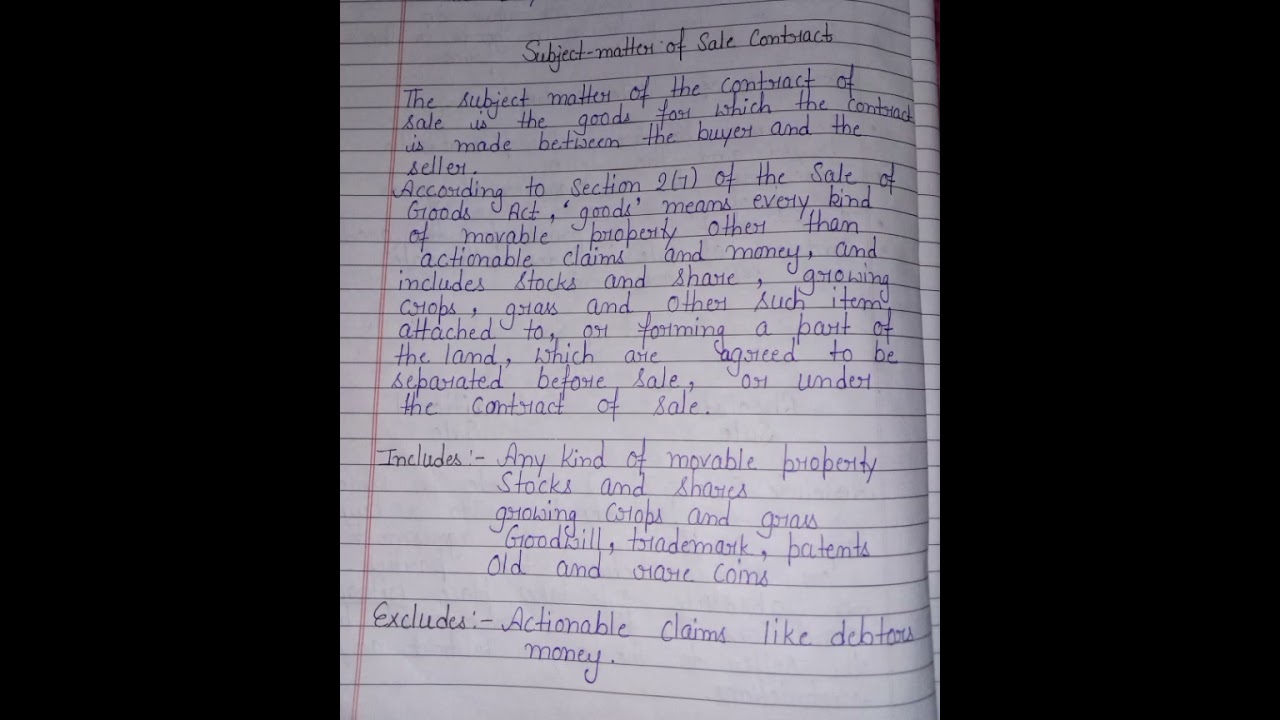 Subject-matter of Sale Contract
The subject matter of the contract of
sale is the goods for which the contract
is made between the buyer and the
seller.
According to Section 2(7) of the Sale of
Goods Act, 'goods' means every kind
of movable property other than
actionable claims and money, and
includes stocks and share, growing
crops, grass and other such item
attached to, or forming a part of
the land, which are agreed to be
separated before sale, or under
the contract of sale.
Includes:- Any kind of movable property
Stocks and shares
growing crops and grass
Goodbill, trademark, patents
Old and rare coins
Excludes:- Actionable claims like debtors
money.